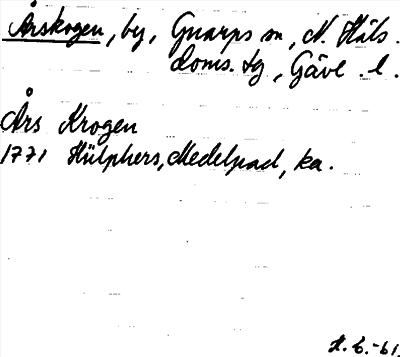 Årskogen, by, Gnarps sn, N. Häls.
doms. tg, Gävl. l.
Års Krogen
1771 Hülphers, Medelpad, ka.
H. C. -61.